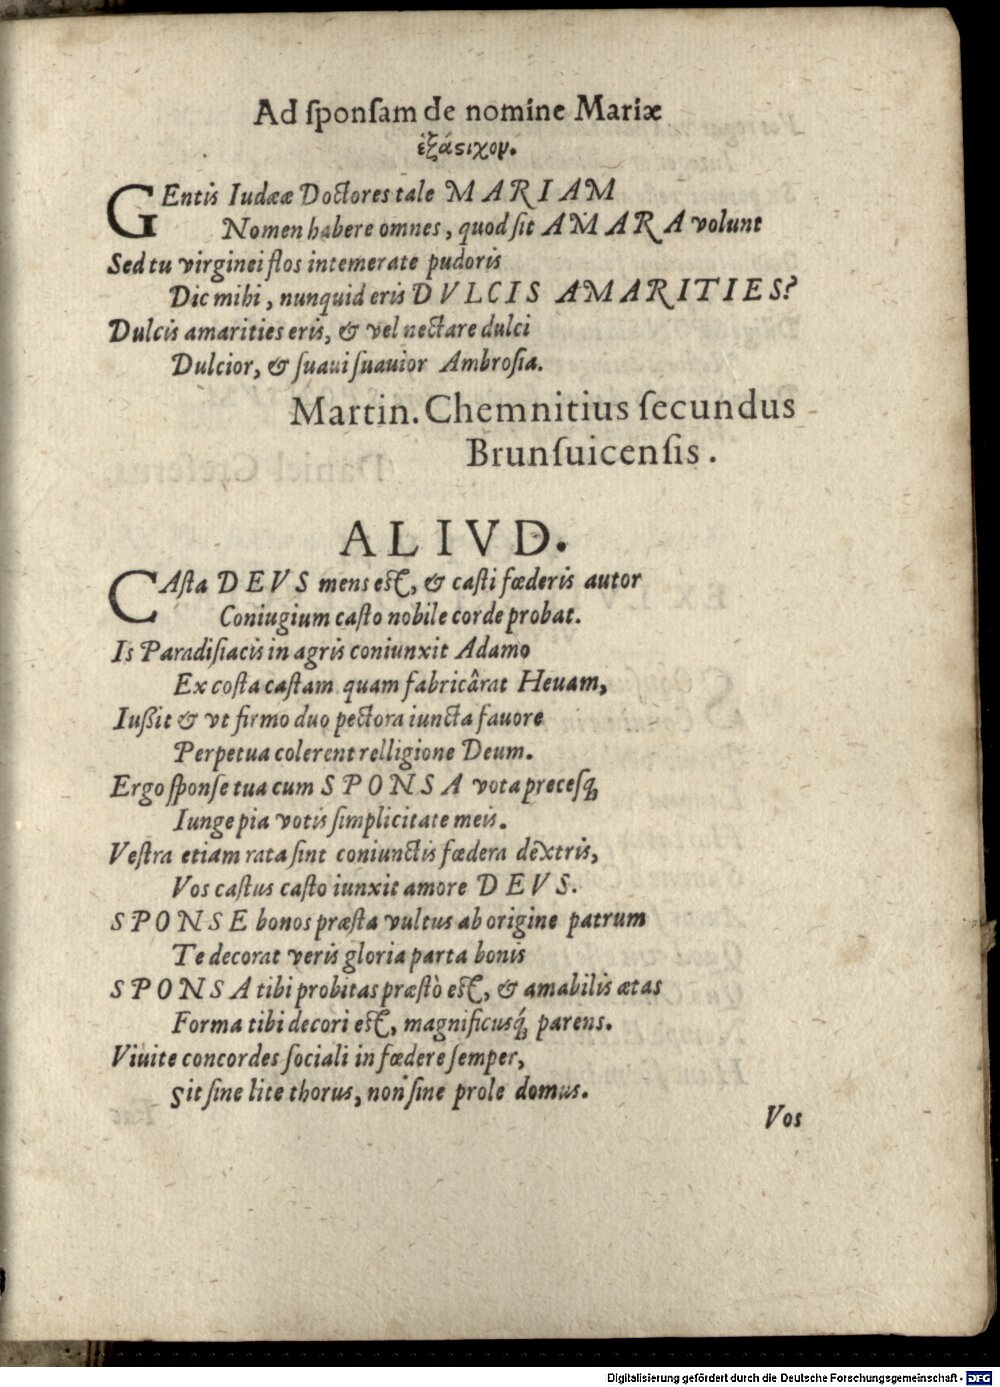 Ad ſponſam de nomine Mariæ
ἑξάϛιχον.
GEntis Iudææ Doctores tale MARIAM
Nomen habere omnes, quod ſit AMARA volunt
Sed tu virginei flos intemerate pudoris
Dic mihi, nunquid eris DVLCIS AMARITIES?
Dulcis amarities eris, & vel nectare dulci
Dulcior, & ſuaui ſuauior Ambroſia.
Martin. Chemnitius ſecundus
Brunſuicenſis.
ALIVD.
CAſta DEVS mens eſt, & caſti fœderis autor
Coniugium caſto nobile corde probat.
Is Paradiſiacis in agris coniunxit Adamo
Ex coſta caſtam quam fabricârat Heuam,
Iußit & vt firmo duo pectora iuncta fauore
Perpetua colerent relligione Deum.
Ergo ſponſe tua cum SPONSA vota preceſq́;
Iunge pia votis ſimplicitate meis.
Veſtra etiam rata ſint coniunctis fœdera dextris,
Vos caſtus caſto iunxit amore DEVS.
SPONSE bonos præſta vultus ab origine patrum
Te decorat veris gloria parta bonis
SPONSA tibi probitas præſtò eſt, & amabilis ætas
Forma tibi decori eſt, magnificusq́; parens.
Viuite concordes ſociali in fœdere ſemper,
Sit ſine lite thorus, non ſine prole domus.
Vos
Digitalisierung gefördert durch die Deutsche Forschungsgemeinschaft - DFG